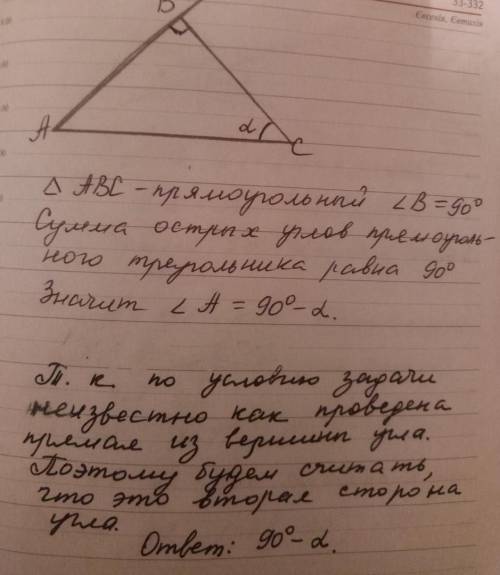 33-332
Євгенія, Євтихія
B
A
α
C
△ ABC - прямоугольный ∠B = 90°
Сумма острых углов прямоуголь-
ного треугольника равна 90°
Значит ∠ A = 90° - α.
Т. к. по условию задачи
неизвестно как проведена
прямая из вершины угла.
Поэтому будем считать,
что это вторая сторона
угла.
Ответ: 90° - α.